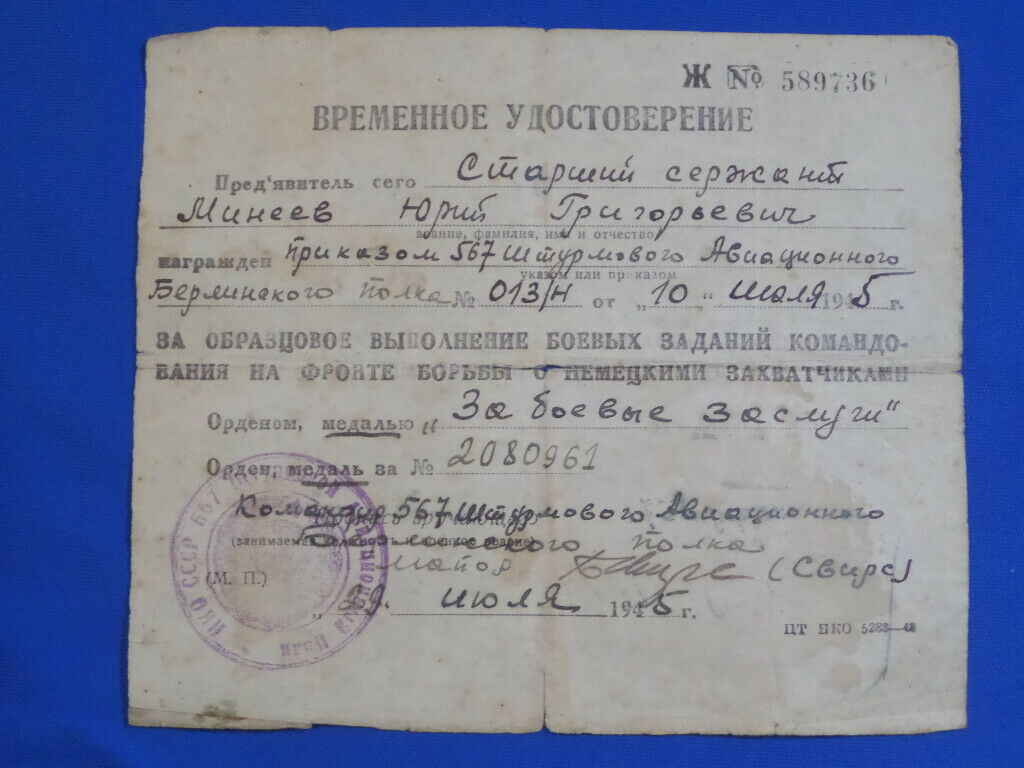 Ж № 589736
ВРЕМЕННОЕ УДОСТОВЕРЕНИЕ
Пред'явитель сего Старший сержант
Минеев Юрий Григорьевич
звание, фамилия, имя и отчество
награжден приказом 567 Штурмового Авиационного
указом или приказом
Берлинского полка № 013/н от „10" июля 1945 г.
ЗА ОБРАЗЦОВОЕ ВЫПОЛНЕНИЕ БОЕВЫХ ЗАДАНИЙ КОМАНДО-
ВАНИЯ НА ФРОНТЕ БОРЬБЫ С НЕМЕЦКИМИ ЗАХВАТЧИКАМИ
Орденом, медалью „За боевые заслуги"
Орден, медаль за № 2080961
Командир 567 Штурмового Авиационного
(занимаемая должность и военное звание)
полка
(М. П.) майор (Свирс)
июля 1945 г.
ЦТ НКО
НКО СССР 567